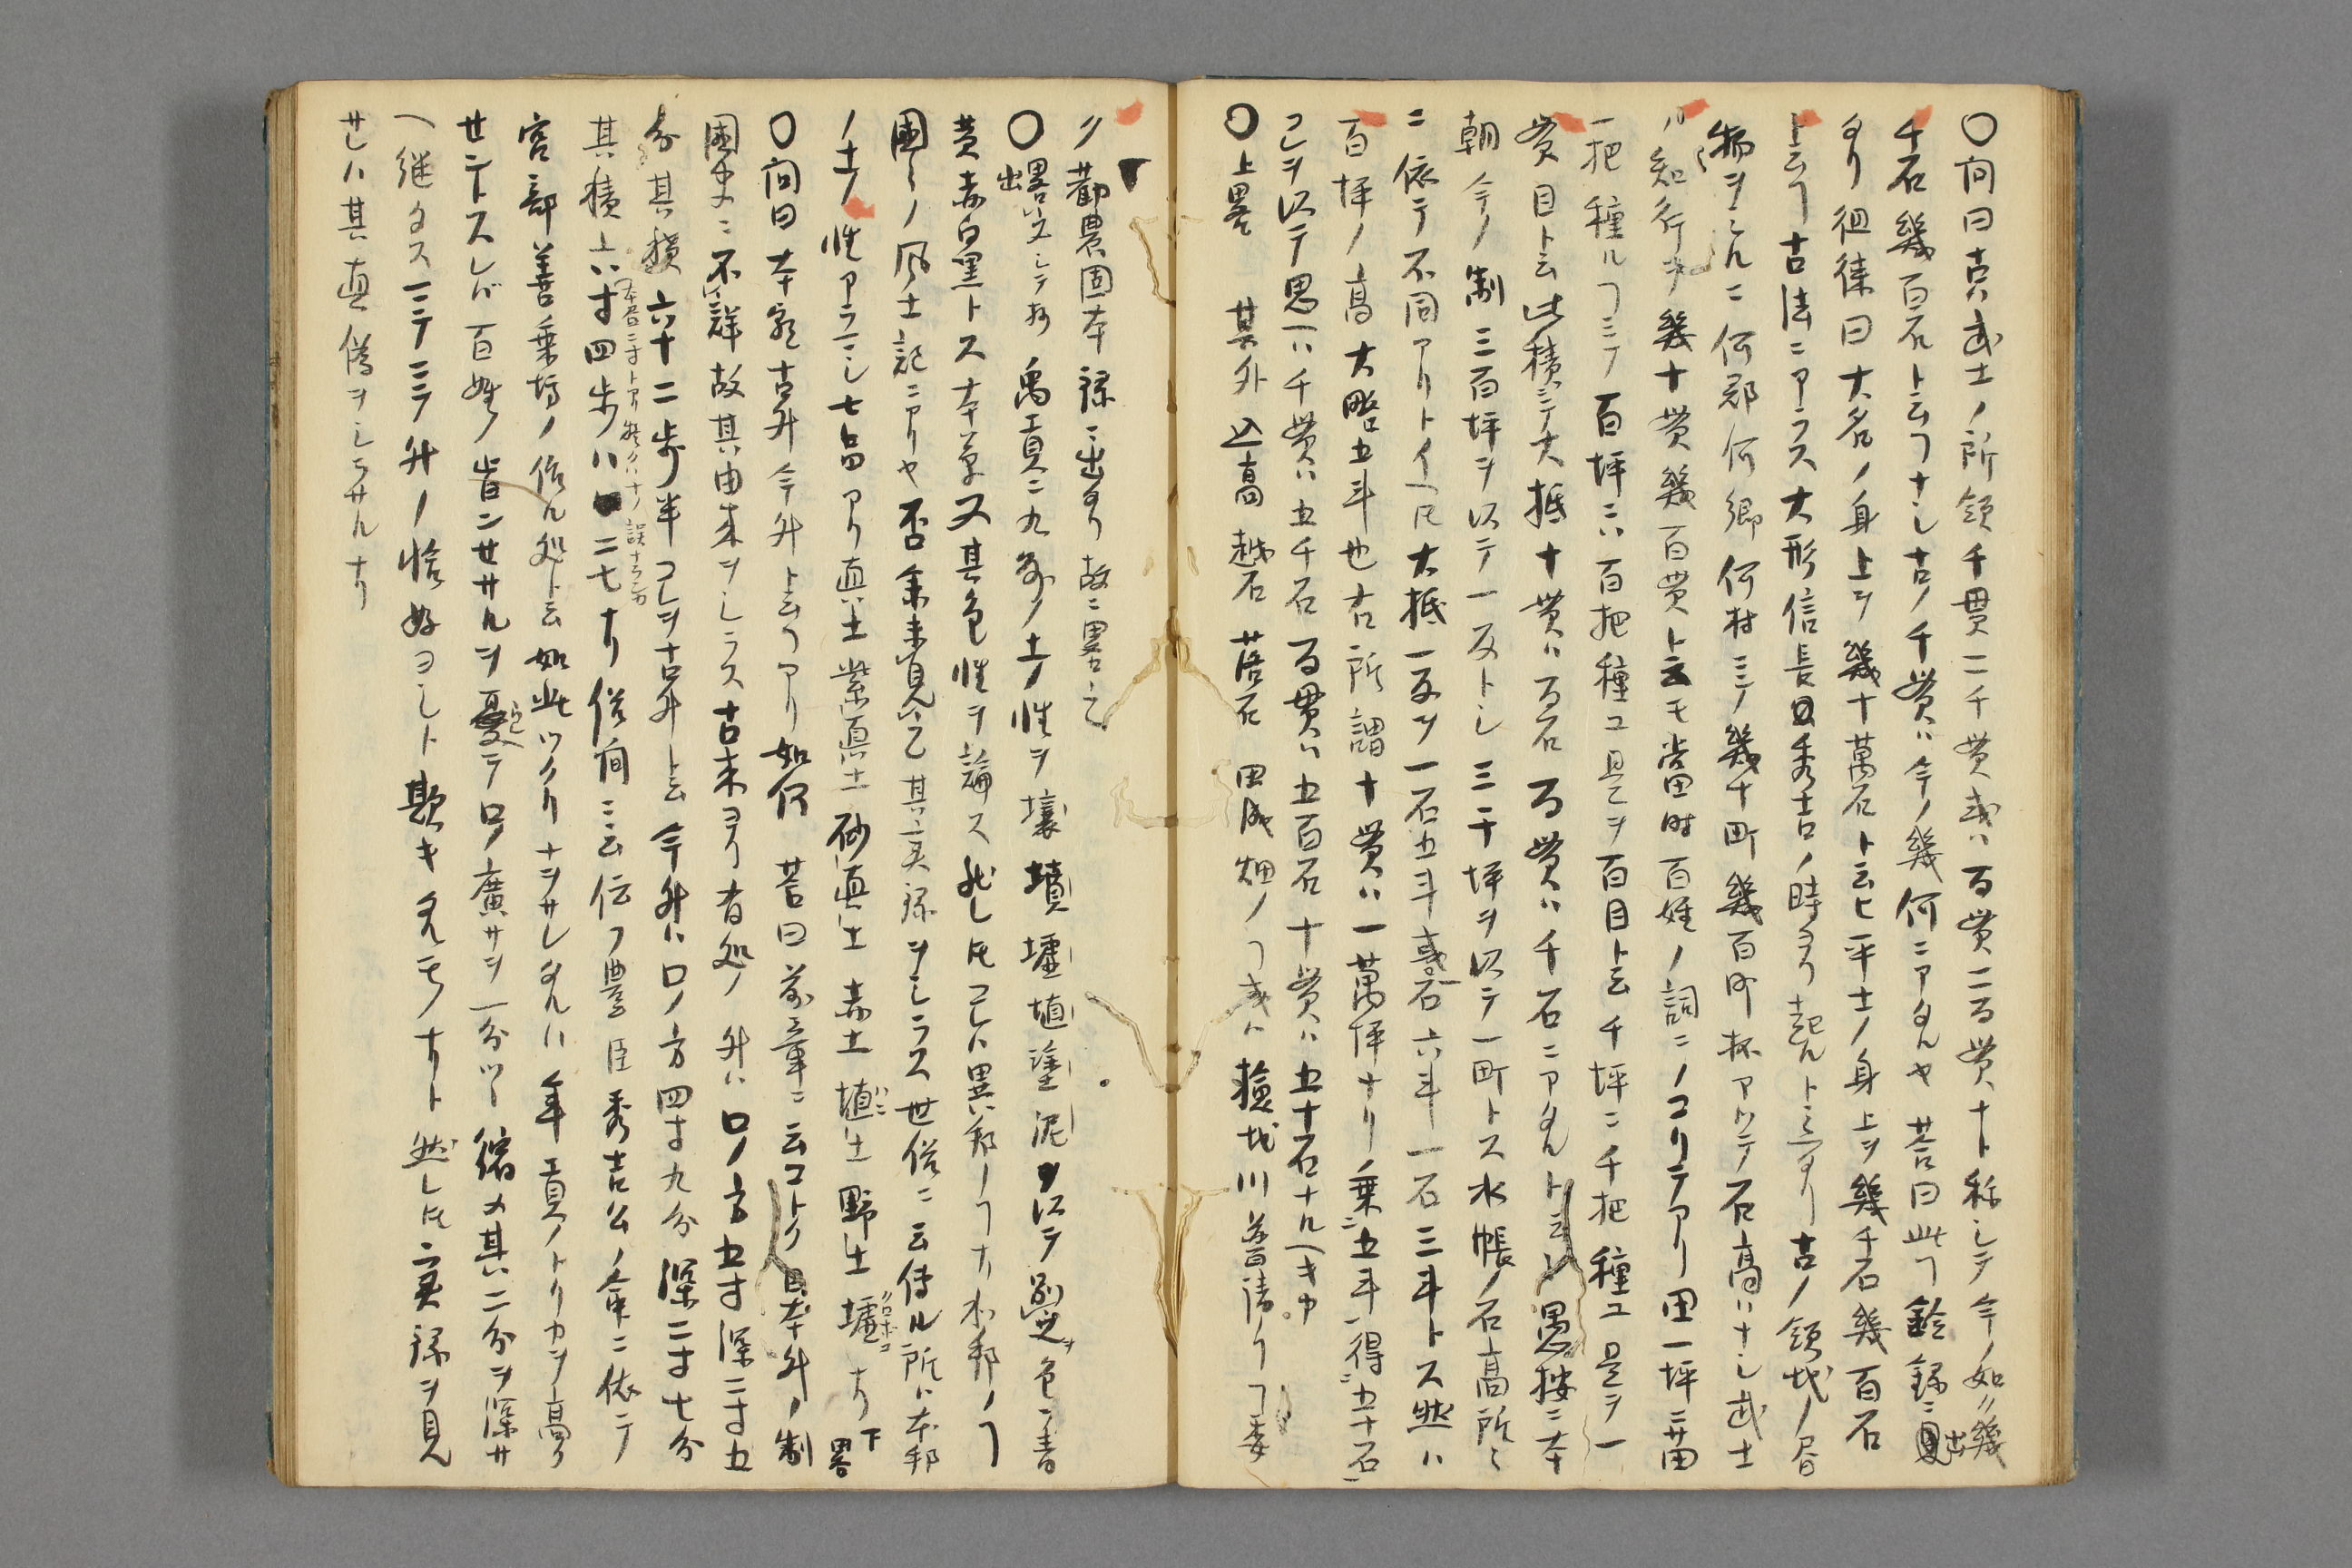 〇問曰古ハ武士ノ所領千貫二千貫或ハ百貫二百貫ナト称シテ今ノ如ク幾
千石幾百石ト云フナシ古ノ千貫ハ今ノ幾何ニアタルヤ 答曰此ヿ鈐録ニ出
タリ徂徠曰大名ノ身上ヲ幾十萬石ト云ヒ平士ノ身上ヲ幾千石幾百石
ト云ヿ古法ニアラス大形信長秀吉ノ時ヨリ起ルト云ヘリ古ノ領地ノ
物ヲミルニ何郡何郷何村ニテ幾十町幾百町杯アリテ石高ハナシ武士
ハ知行ヲ幾十貫幾百貫ト云モ當時百姓ノ詞ニノコリテアリ田一坪ニ苗
一把種ルヿニテ百坪ニハ百把種ユ是ヲ百目ト云千坪ニ千把種ユ是ヲ一
貫目ト云此積ニテ大抵十貫ハ百石百貫ハ千石ニアタルト云 愚按ニ本
朝今ノ制三百坪ヲ以テ一反トシ三千坪ヲ以テ一町トス水帳ノ石高所ニ
ニ依テ不同アリトイヘ𪜈大抵一反ヲ一石五斗或ハ一石六斗一石三斗トス然ハ
百坪ノ高大畧五斗也右所謂十貫ハ一萬坪ナリ乗ニ五斗ヲ得五十石
コヲ以テ思ヘハ千貫ハ五千石百貫ハ五百石十貫ハ五十石ナルヘキカ
〇上畧 其外込高越石落石田成畑ノヿ或ハ檢地川普請ノヿ委
ク勸農固本録ニ出タリ故ニ畧之
〇畧文シテ出 禹貢ニ九州ノ土ノ性ヲ壤墳壚埴塗泥ヲ以テ別之色ヲ青
黄赤白黒トス本草又其色性ヲ論ス然レ𪜈コレハ異邦ノヿナリ本邦ノヿ
國々ノ風土記ニアリヤ否余未見其實録ヲシラス世俗ニ云傳ル所ハ本邦
ノ土ノ性アラマシ七品アリ真土紫真土砂真土赤土埴土野土壚ナリ下畧
〇問曰本邦古升今升ト云ヿアリ如何 答曰前章ニ云コトク日本升ノ制
國史ニ不詳故其由来ヲシラス古来ヨリ有処ノ升ハ口ノ方五寸深二寸五
分其積六十二歩半コレヲ古升ト云今升ハ口ノ方四寸九分深二寸七分
其積六寸四歩八二七ナリ俗間ニ云伝フ豊臣秀吉公ノ命ニ依テ
宮部善乗坊ノ作ル処ト云如此ツクリナヲサレタルハ年貢ノトリカヲ高ク
センートスレハ百姓ノ肯ンセサルヲ憂テ口ノ廣サヲ一分ツヽ縮メ其二分ヲ深サ
ヘ継タス一ニテニニテ升ノ恰好ヨシト欺キタルモノナリト然レ𪜈實録ヲ見
サレハ其真偽ヲシラサルナリ